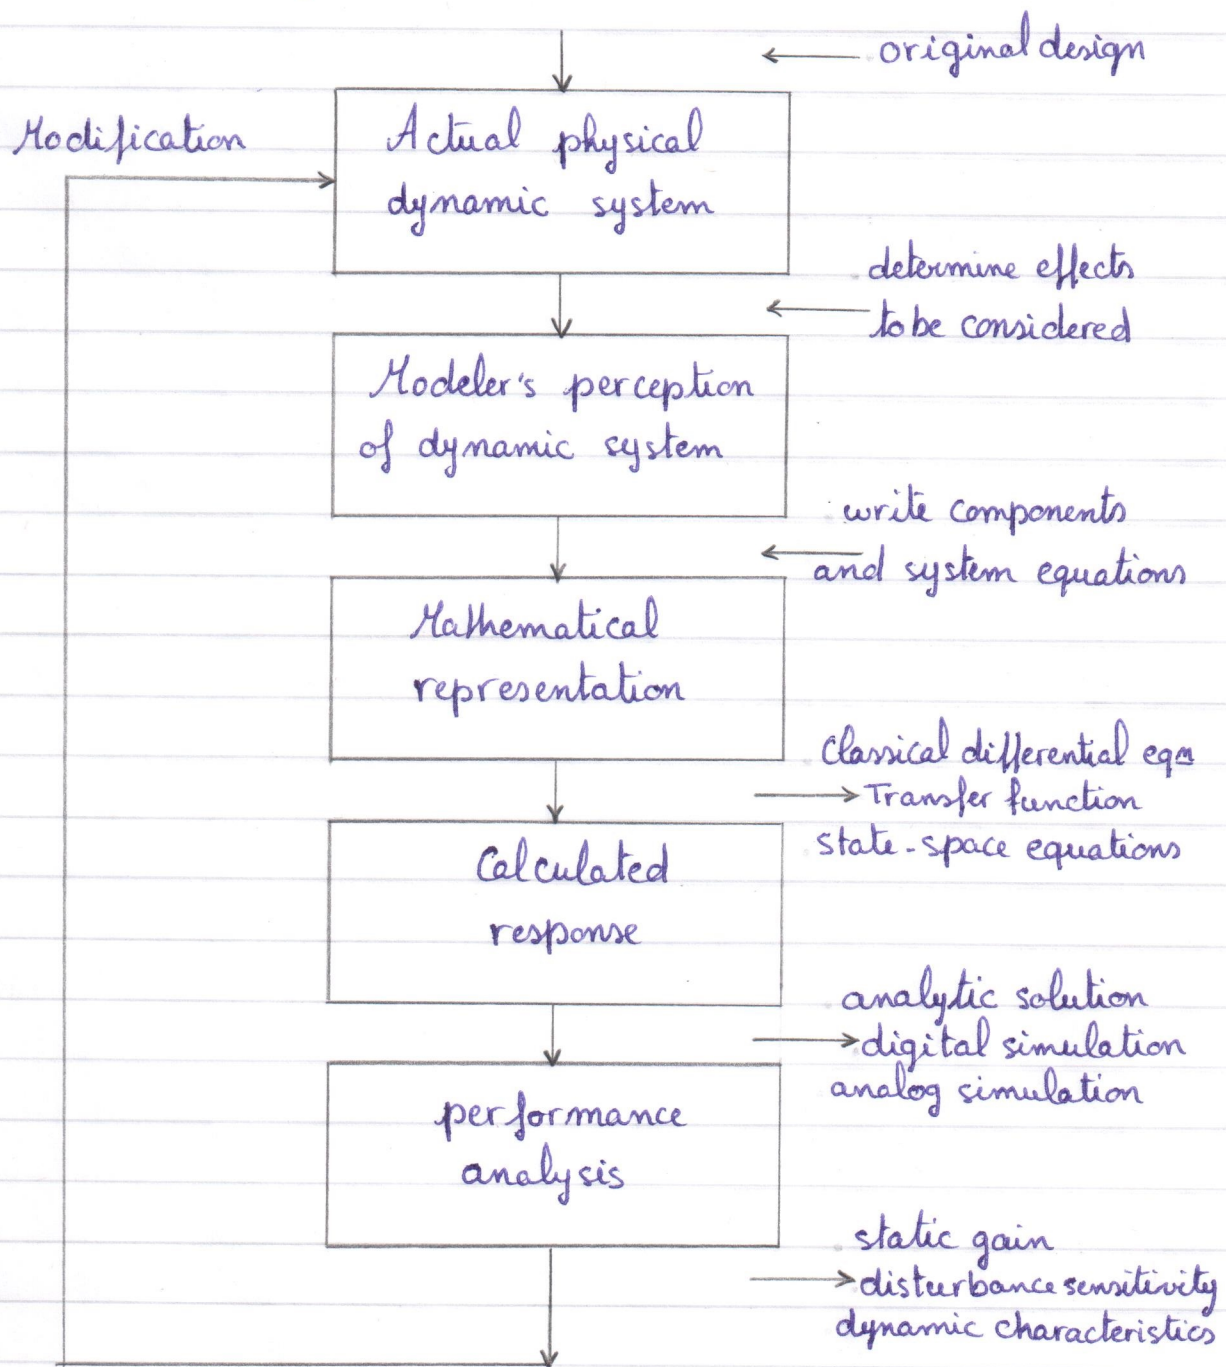 original design
Modification
Actual physical
dynamic system
determine effects
to be considered
Modeler's perception
of dynamic system
write components
and system equations
Mathematical
representation
Classical differential eqn
Transfer function
state-space equations
Calculated
response
analytic solution
digital simulation
analog simulation
performance
analysis
static gain
disturbance sensitivity
dynamic characteristics